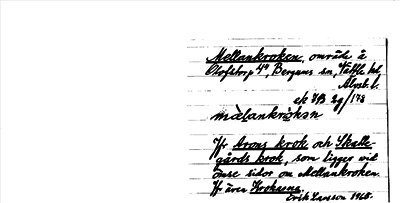 Mellankroken, område å
Olofstorp 4°, Bergums sn, Vättle hd
Älvsb. l.
ek 7B 2g/178
màlankrókən
Jfr Arons krok och Skatte-
gårds krok, som ligger vid
ömse sidor om Mellankroken.
Jfr även Krokarna.
Erik Larsson 1968.